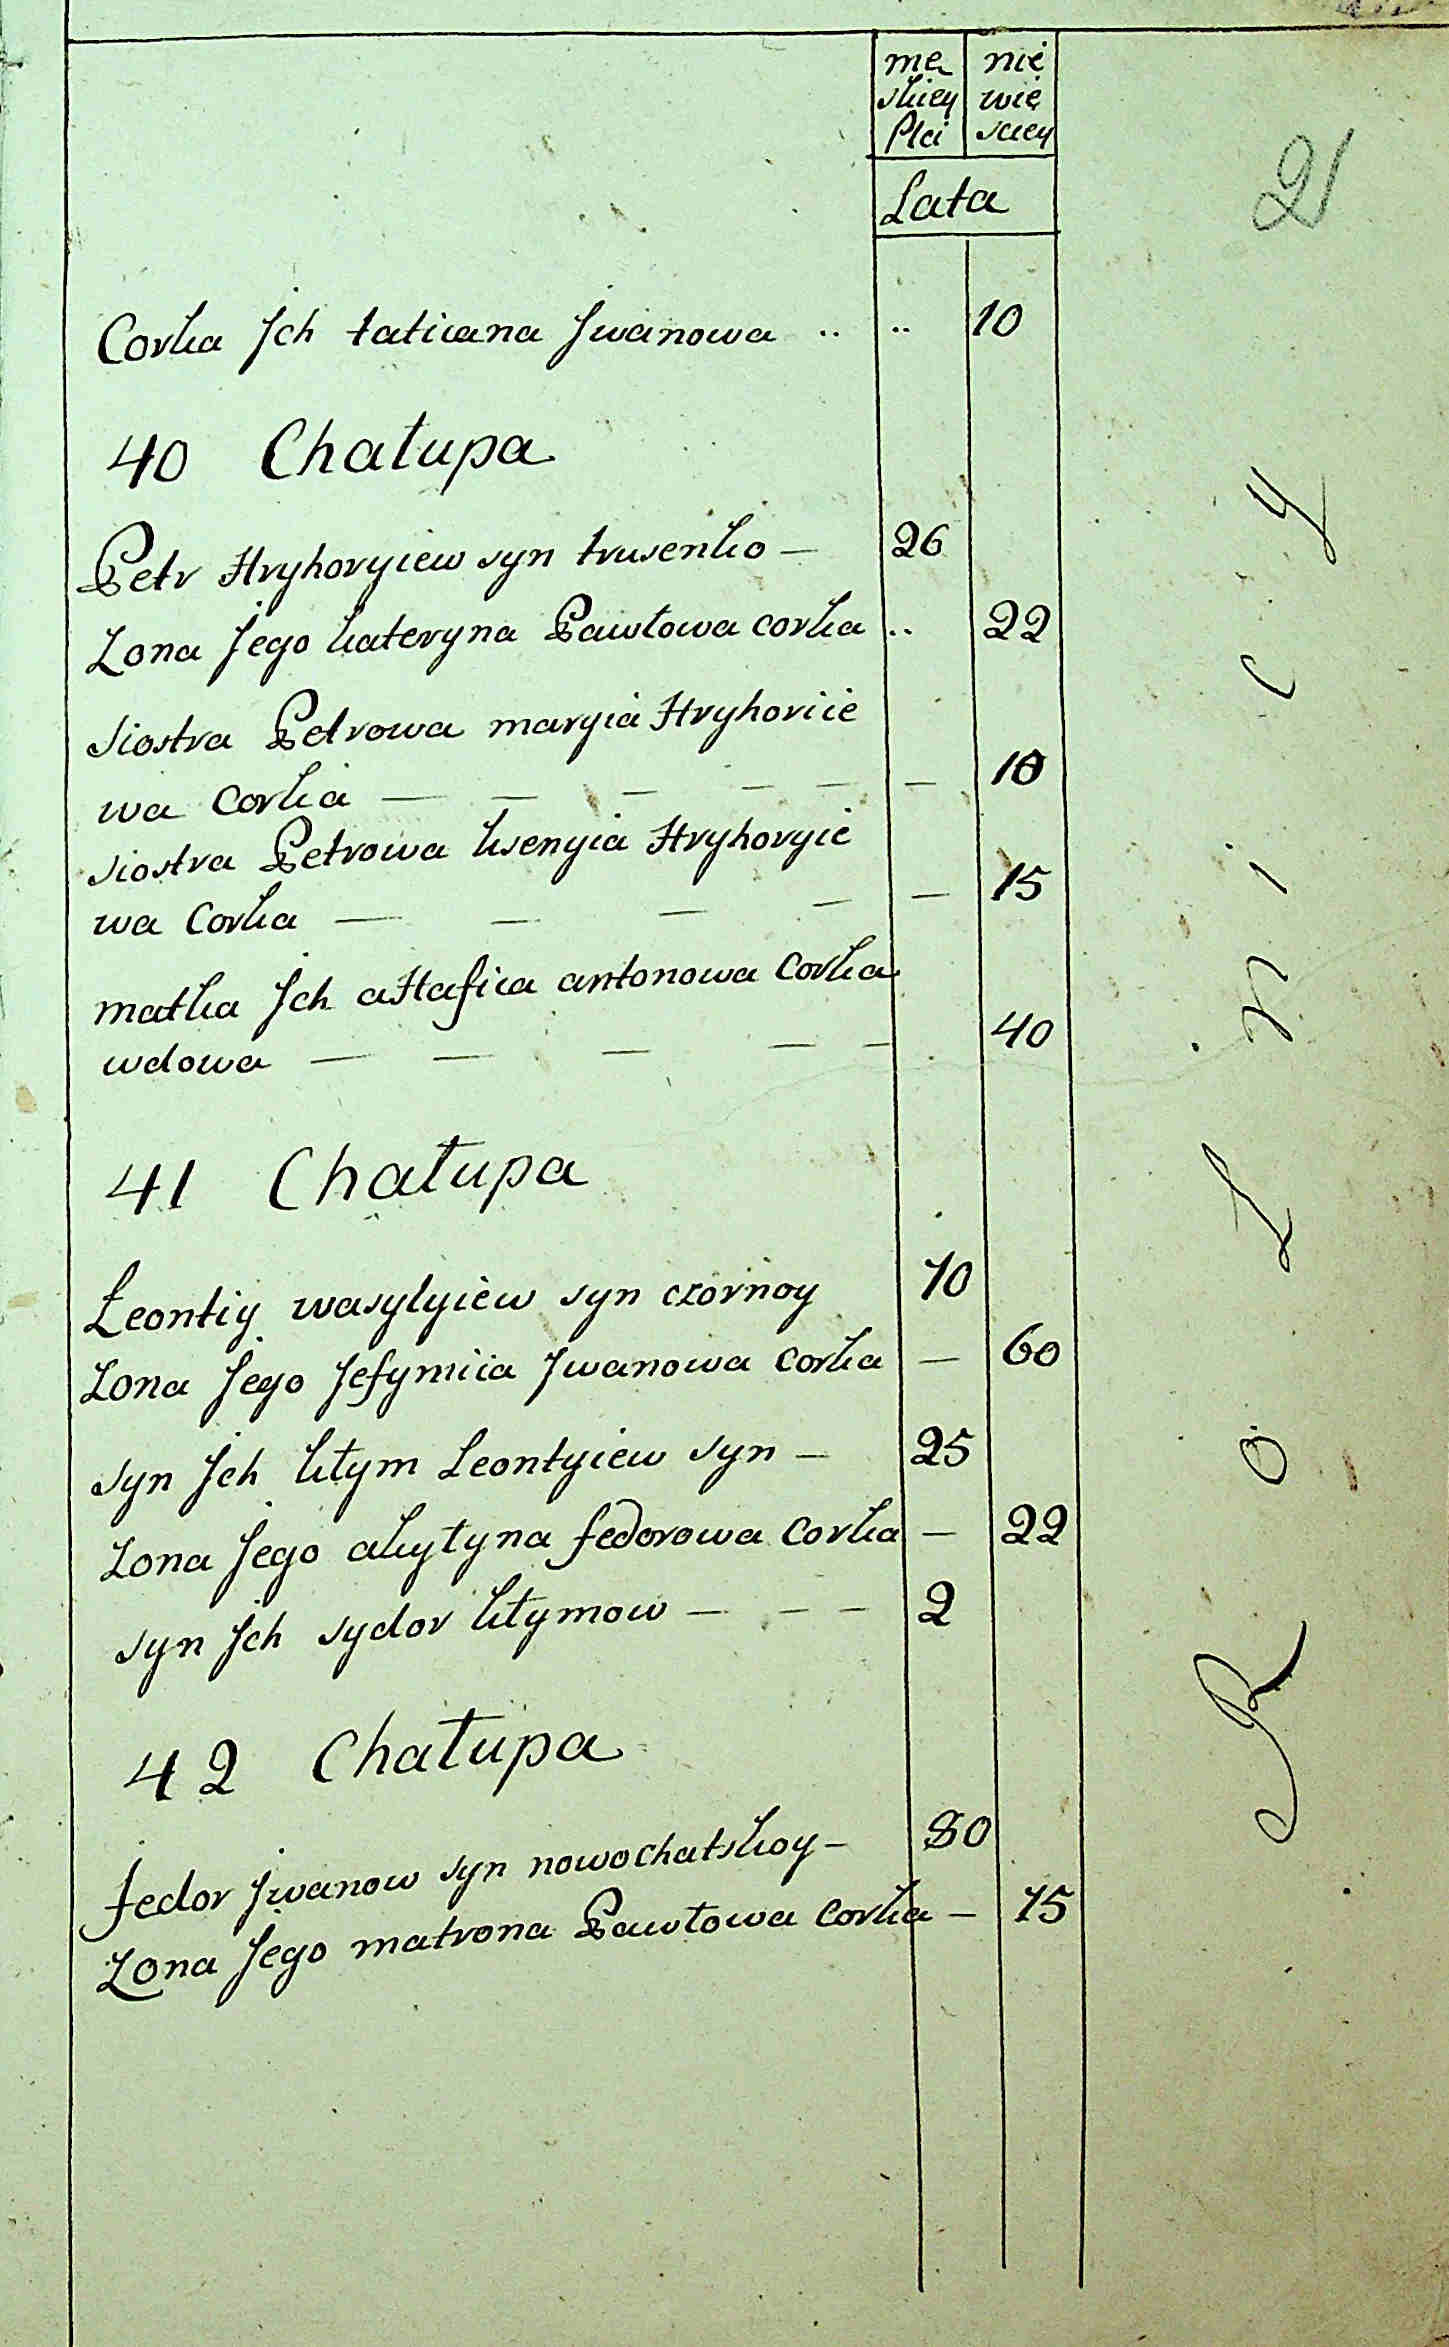 mę nie
skiey wie
Płci sciey
Lata
21
Corka Jch taticana Jwanowa .. .. 10
40 Chałupa
Petr Hryhoryiew syn trusenko — 26
Zona Jego kateryna Pawłowa corka .. 22
siostra Petrowa maryia Hryhoriie
wa Corka — — — — — — 10
siostra Petrowa ksenyia Hryhoryie
wa Corka — — — — — 15
matka Jch aHafica antonowa Corka
wdowa — — — — — 40
41 Chałupa
Leontiy wasylyiew syn czornoy 70
Zona Jego Jefymiia Jwanowa corka — 60
syn Jch kłym Leontyiew syn — 25
Zona Jego akyłyna fedorowa Corka — 22
syn Jch sydor kłymow — — — 2
42 Chałupa
fedor Jwanow syn nowochatskoy — 80
Zona Jego matrona Pawłowa Corka — 75
R o L n i c y